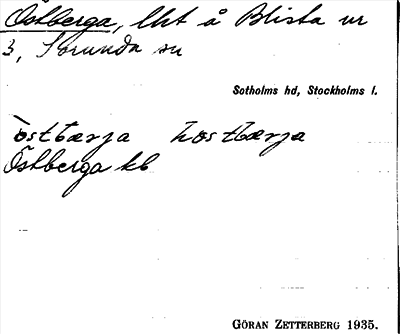 Östberga, lht å Blista nr
3, Sorunda sn
Sotholms hd, Stockholms l.
östbærja  östbærja
Östberga kb
GÖRAN ZETTERBERG 1935.